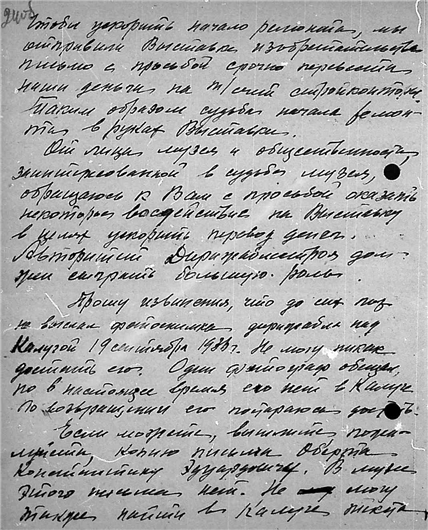 240б
Чтобы ускорить начало ремонта, мы
отправили Выставке изобретательства
письмо с просьбой срочно перевести
наши деньги на т/счет стройконторы.
Таким образом судьба начала ремон-
та в руках Выставки.
От лица музея и общественности,
заинтересованной в судьбе музея,
обращаюсь к Вам с просьбой оказать
некоторое воздействие на Выставку
в целях ускорить перевод денег.
Авторитет Дирижаблестроя дол-
жен сыграть большую роль.
Прошу извинения, что до сих пор
не выслал фотоснимка дирижабля над
Калугой 19 сентября Не могу никак
достать его. Один фотограф обещал,
но в настоящее время его нет в Калуге
По возвращении его постараюсь достать.
Если можете, вышлите пожа-
луйста, копию письма Оберта
Константину Эдуардовичу. В музее
этого письма нет. Не могу
также найти в Калуге